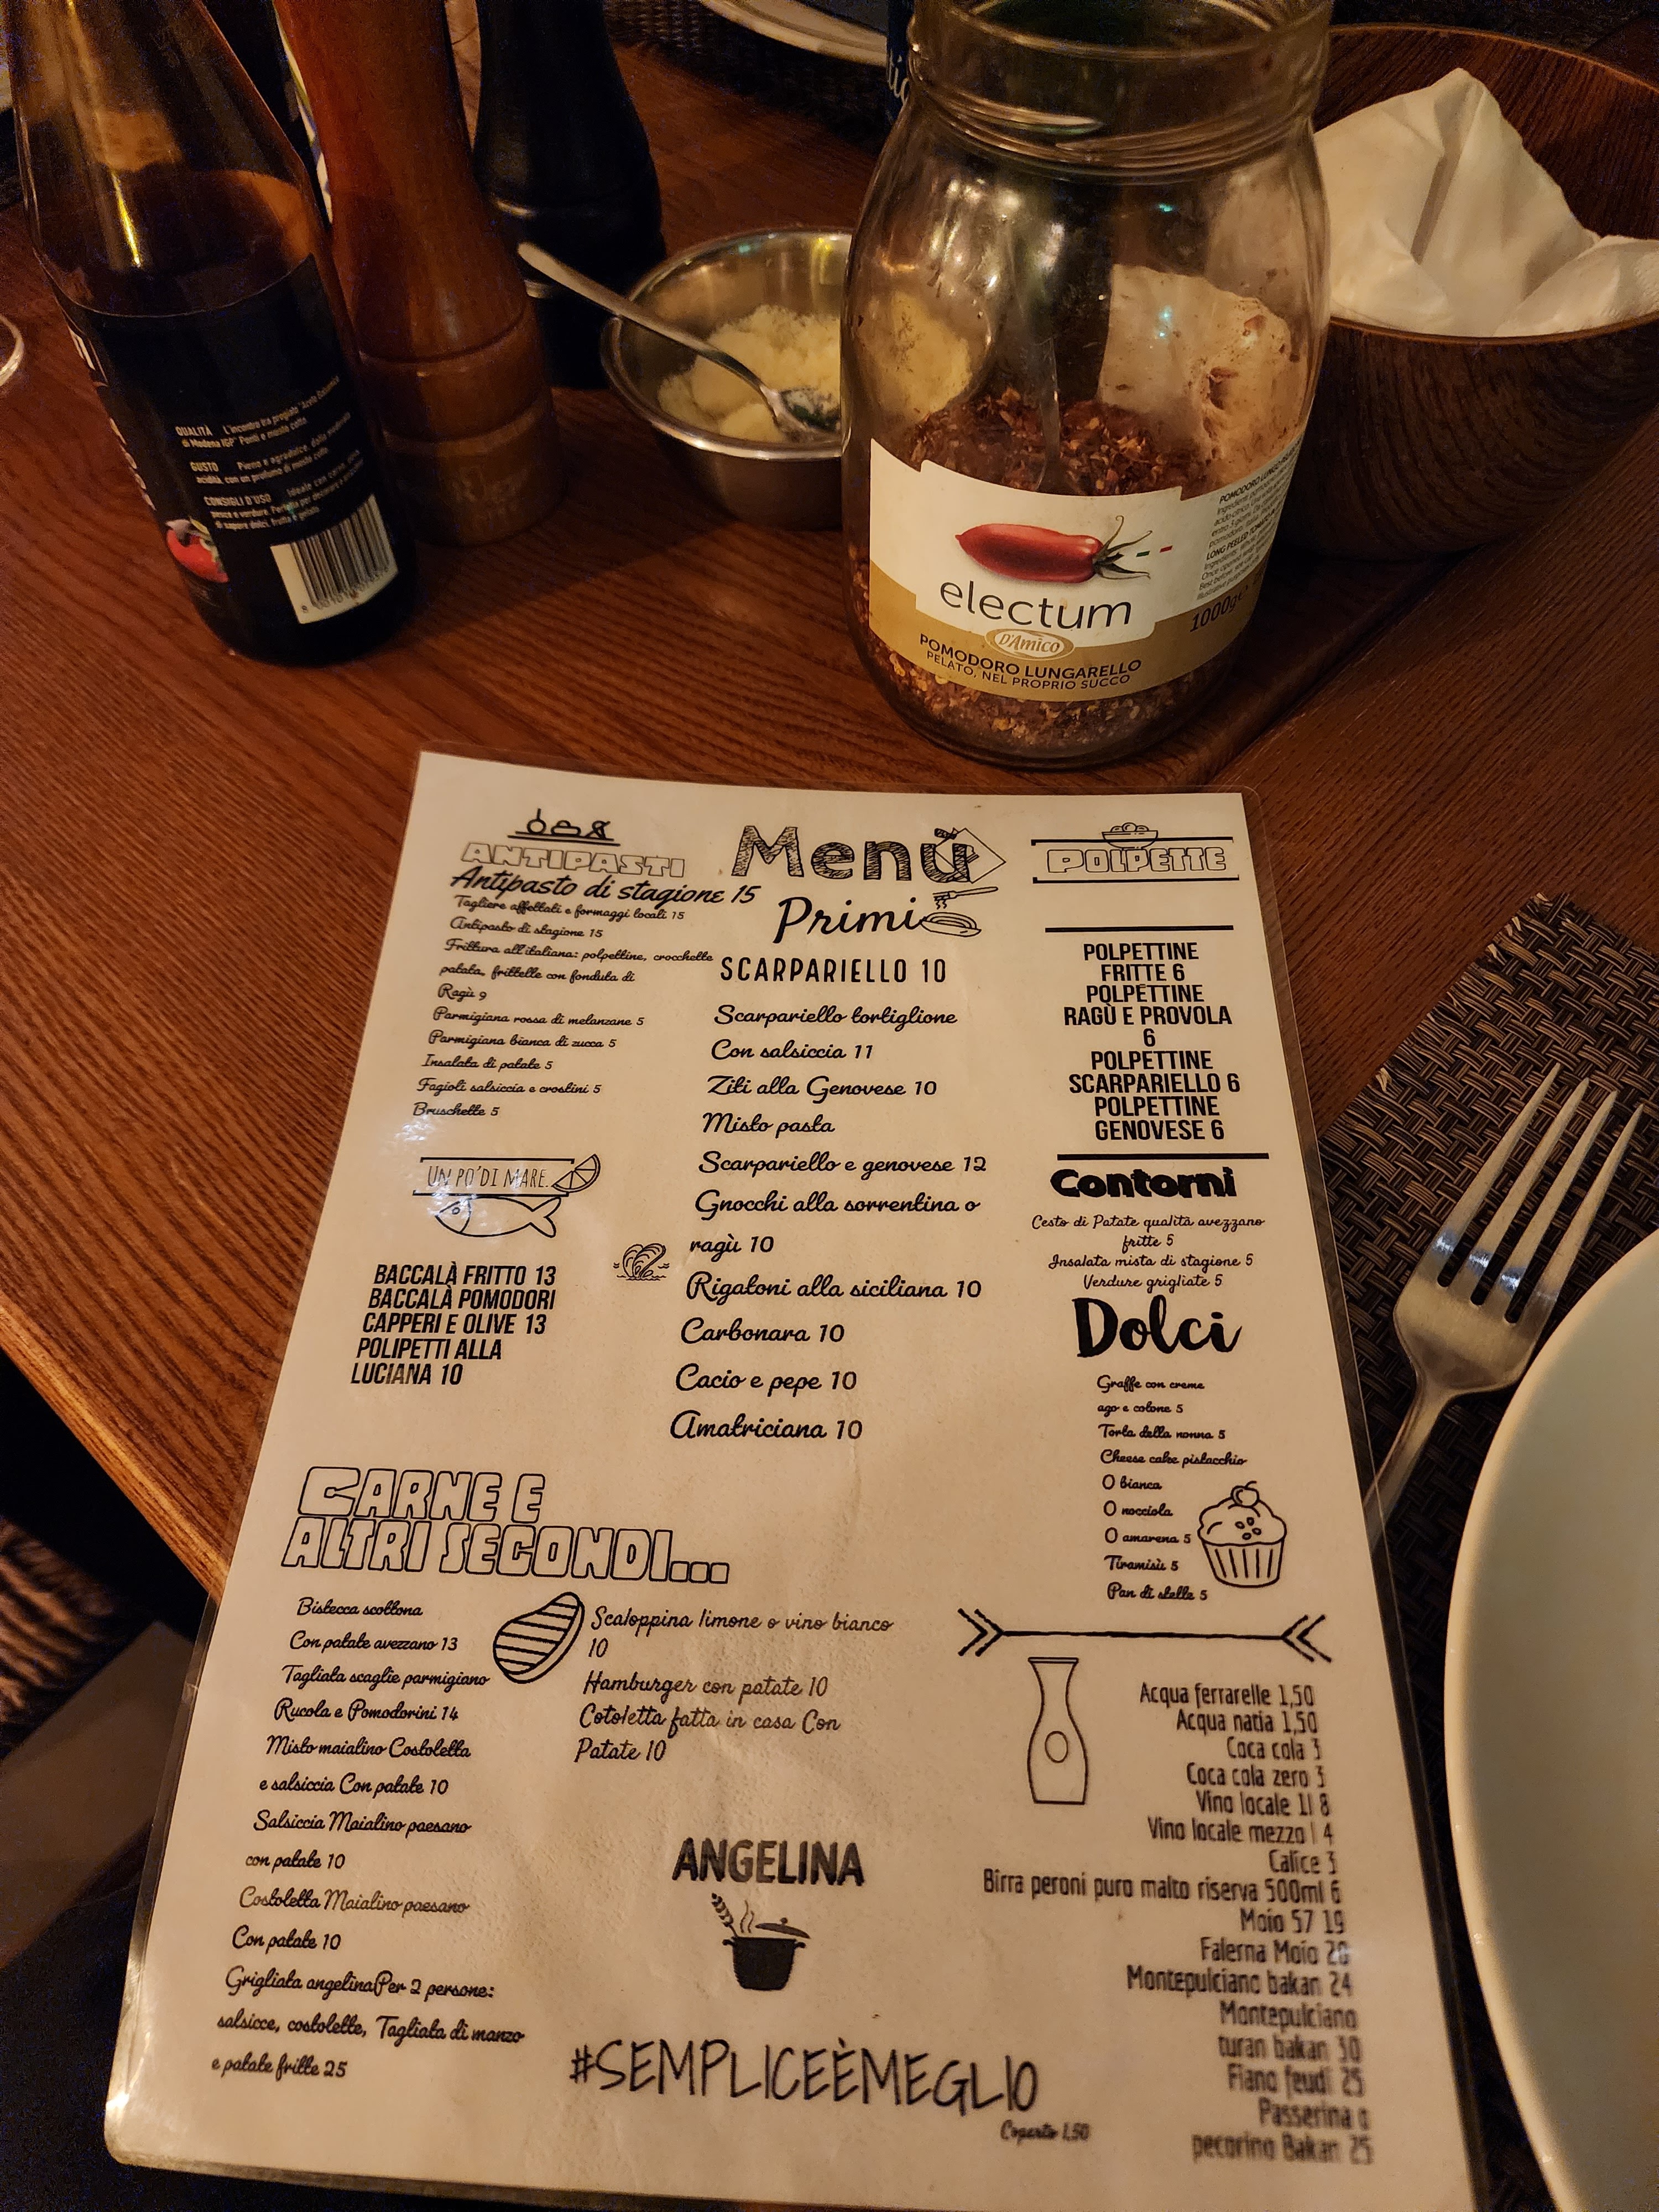 QUALITÀ L'incontro tra pregiato "Aceto Balsamico
di Modena IGP" Ponti e mosto cotto
GUSTO Pieno e agrodolce, dalla moderata
acidità, con un profumo di mosto cotto
CONSIGLI D'USO Ideale con carne,
pesce e verdure. Perfetta per decorare e
di sapore dolci, frutta e gelato
electum
D'Amico
POMODORO LUNGARELLO
PELATO, NEL PROPRIO SUCCO
1000g e
POMODORO LUNGO
LONG PEELED TOMATO
ANTIPASTI
Antipasto di stagione 15
Tagliere affettati e formaggi locali 15
Antipasto di stagione 15
Frittura all'italiana: polpettine, crocchette
patata, frittelle con fonduta di
Ragù 9
Parmigiana rossa di melanzane 5
Parmigiana bianca di zucca 5
Insalata di patate 5
Fagioli salsiccia e crostini 5
Bruschette 5
UN PO' DI MARE..
BACCALÀ FRITTO 13
BACCALÀ POMODORI
CAPPERI E OLIVE 13
POLIPETTI ALLA
LUCIANA 10
Menù
Primi
SCARPARIELLO 10
Scarpariello tortiglione
Con salsiccia 11
Ziti alla Genovese 10
Misto pasta
Scarpariello e genovese 12
Gnocchi alla sorrentina o
ragù 10
Rigatoni alla siciliana 10
Carbonara 10
Cacio e pepe 10
Amatriciana 10
POLPETTE
POLPETTINE
FRITTE 6
POLPETTINE
RAGÙ E PROVOLA
6
POLPETTINE
SCARPARIELLO 6
POLPETTINE
GENOVESE 6
Contorni
Cesto di Patate qualità avezzano
fritte 5
Insalata mista di stagione 5
Verdure grigliate 5
Dolci
Graffe con creme
ago e cotone 5
Torta della nonna 5
Cheese cake pistacchio
O bianca
O nocciola
O amarena 5
Tiramisù 5
Pan di stelle 5
CARNE E
ALTRI SECONDI...
Bistecca scottona
Con patate avezzano 13
Tagliata scaglie parmigiano
Rucola e Pomodorini 14
Misto maialino Costoletta
e salsiccia Con patate 10
Salsiccia Maialino paesano
con patate 10
Costoletta Maialino paesano
Con patate 10
Grigliata angelinaPer 2 persone:
salsicce, costolette, Tagliata di manzo
e patate fritte 25
Scaloppina limone o vino bianco
10
Hamburger con patate 10
Cotoletta fatta in casa Con
Patate 10
ANGELINA
#SEMPLICEÈMEGLIO
Coperto 1,50
Acqua ferrarelle 1,50
Acqua natia 1,50
Coca cola 3
Coca cola zero 3
Vino locale 1l 8
Vino locale mezzo l 4
Calice 3
Birra peroni puro malto riserva 500ml 6
Moio 57 19
Falerna Moio 20
Montepulciano bakan 24
Montepulciano
turan bakan 30
Fiano feudi 25
Passerina o
pecorino Bakan 25